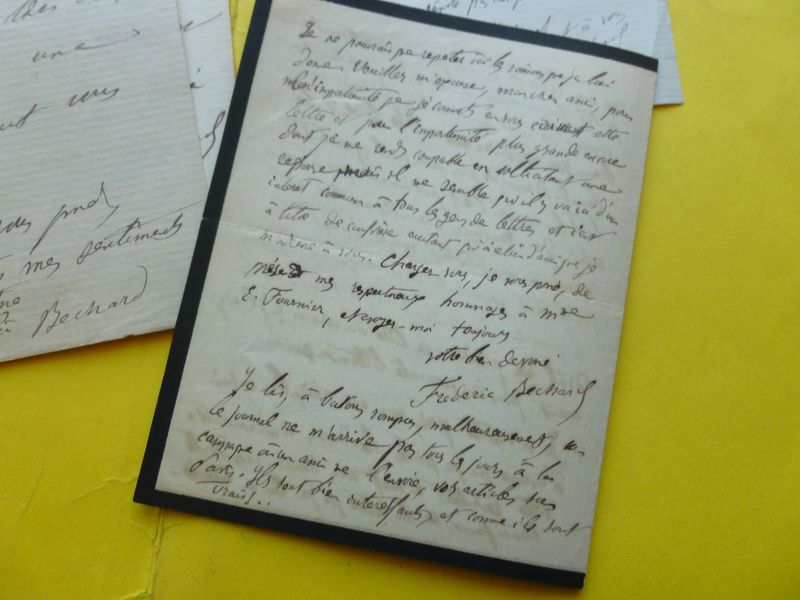 des
une
tout vous
vous prie,
mes sentiments
Bechard
à vous
Je ne pourrais que repeter ici les raisons que je lui
donne. Veuillez m'excuser, mon cher ami, pour
l'importunité que je commets envers vous cette
lettre et pour l'importunité plus grande encore
dont je me rends coupable en sollicitant une
reponse mais il me semble qu'il y va ici d'un
interet commun à tous les gens de lettres et c'est
à titre de confrère autant qu'à celui d'ami que je
m'adresse à vous. Chargez vous, je vous prie, de
mes respectueux hommages à mme
E. Fournier, et croyez-moi toujours
votre bien devoué
Frederic Bechard
Je lis, à batons rompus, malheureusement, car
le journal ne m'arrive pas tous les jours à la
campagne où un ami me l'envoie, vos articles sur
Paris. Ils sont bien interessants et comme ils sont
vrais!..